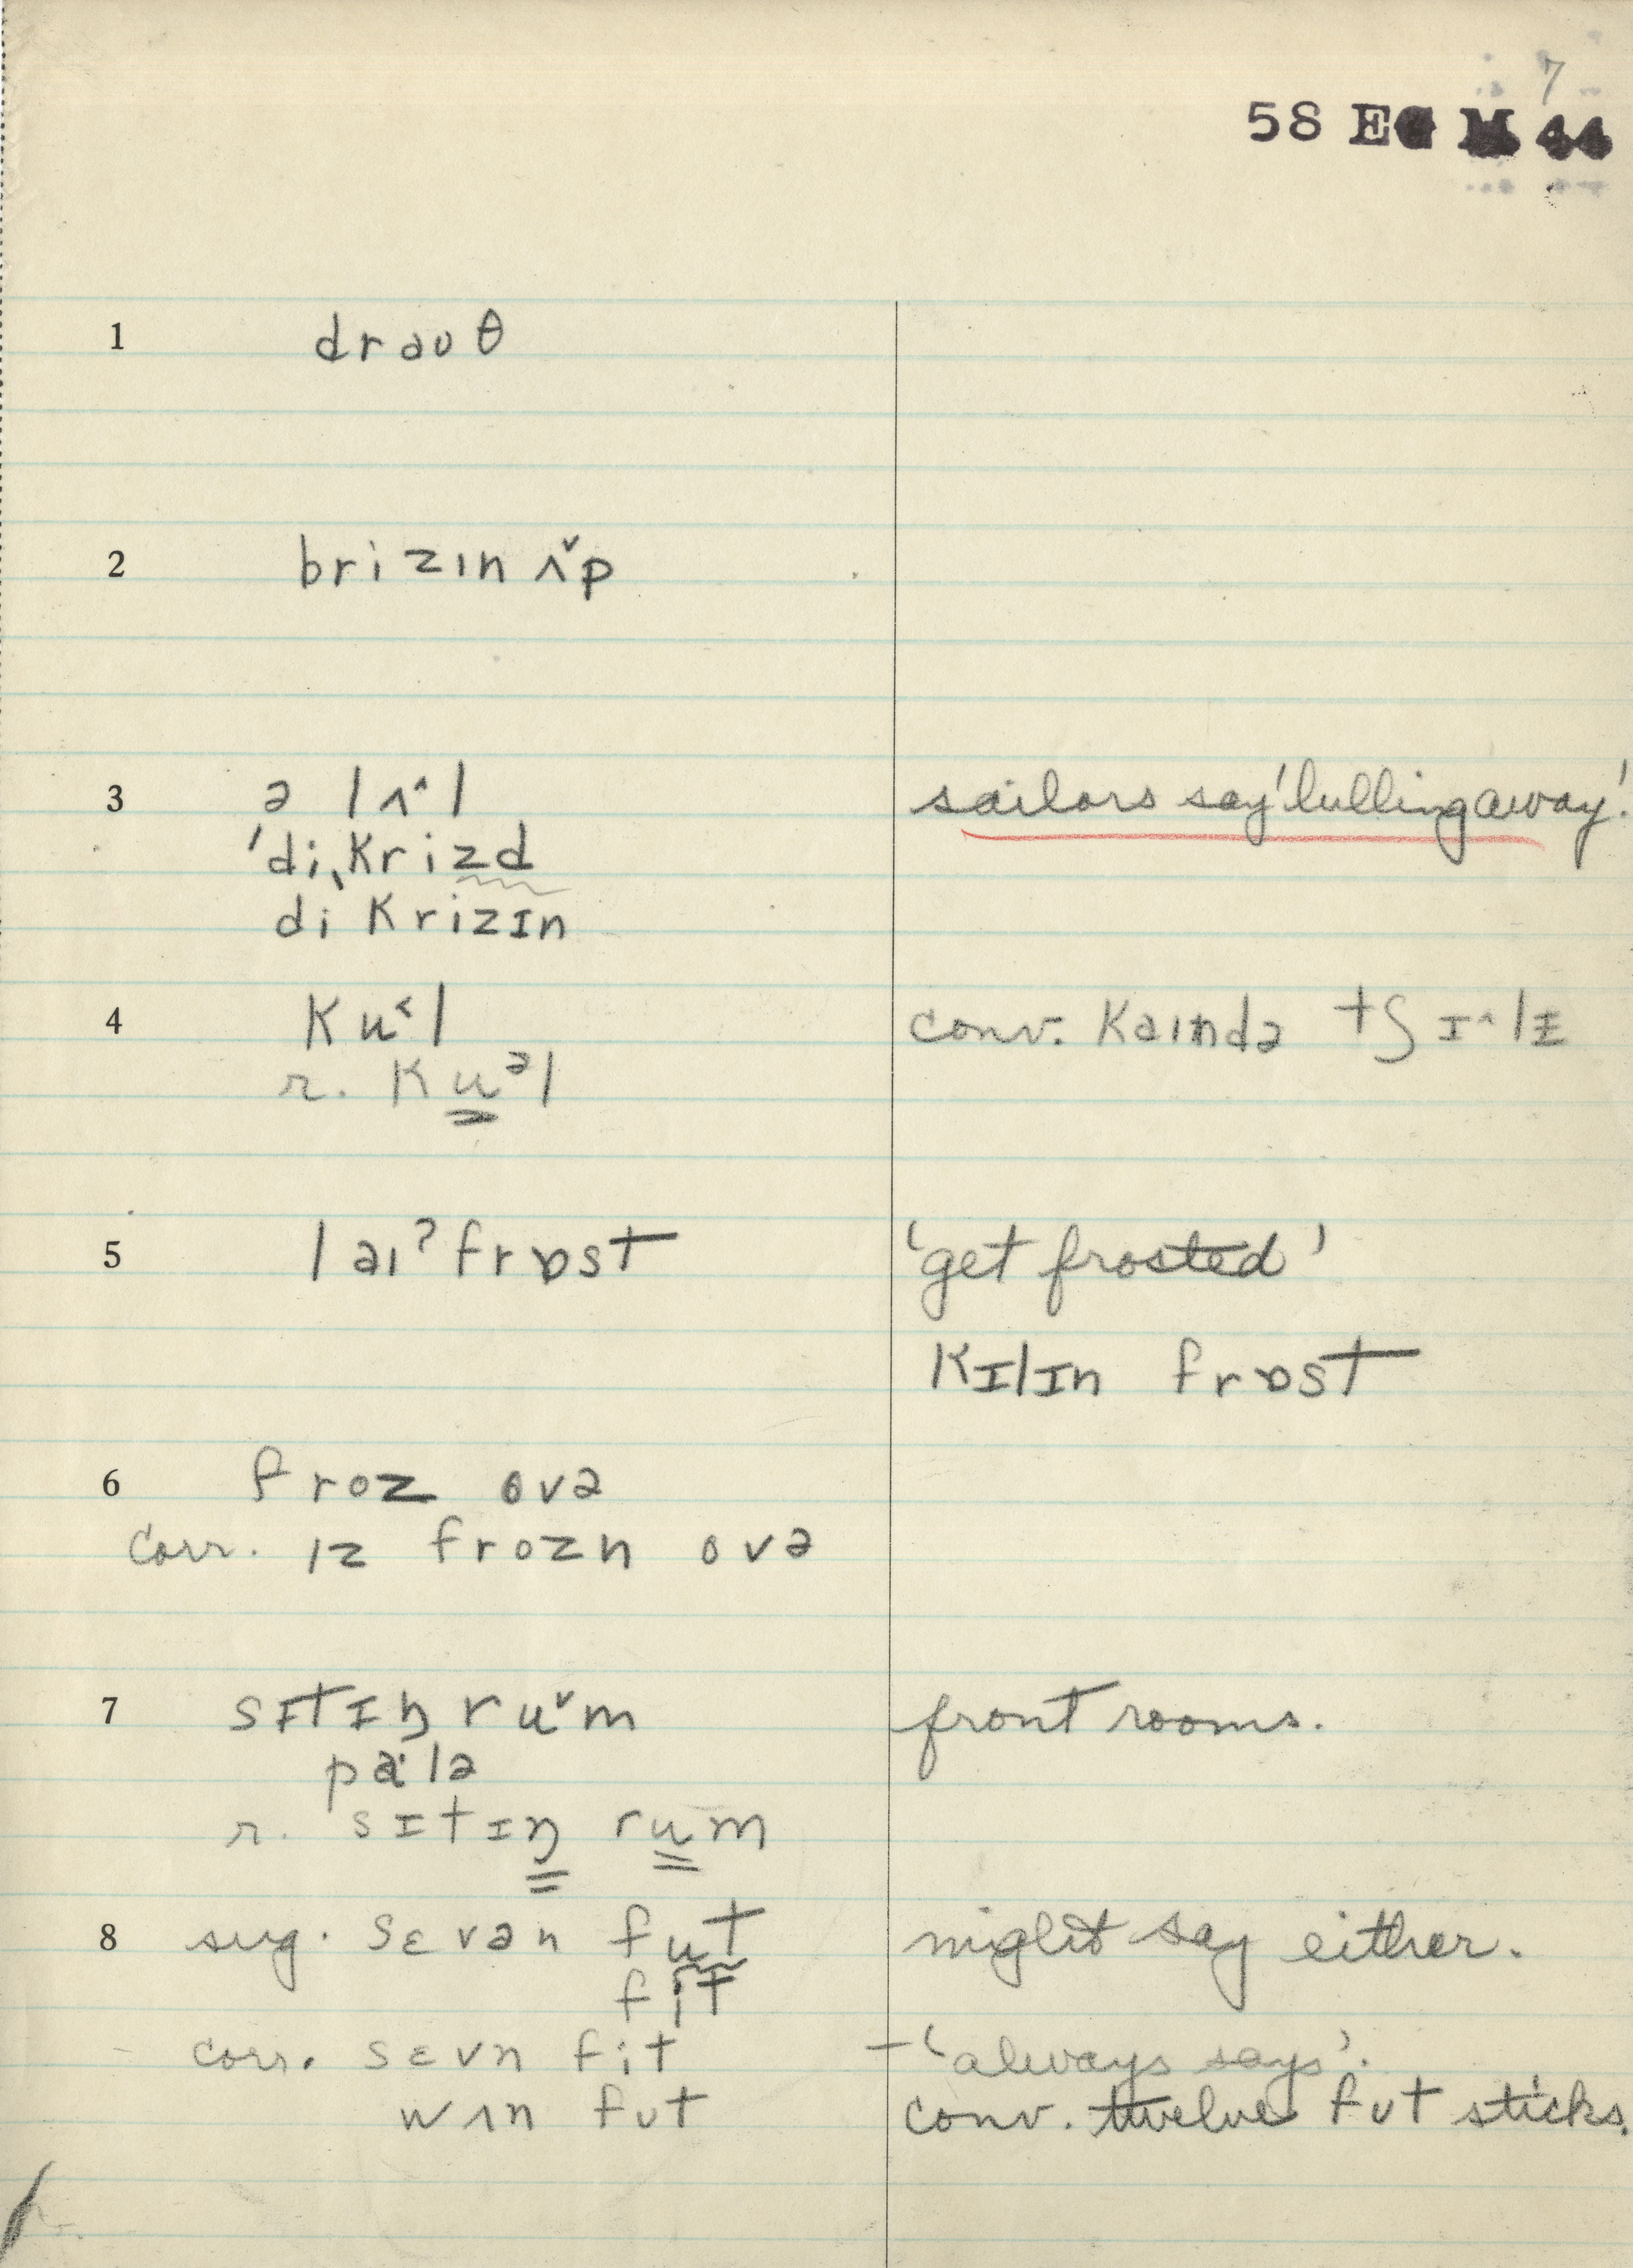 7
58 E
1 draʊθ
2 brizɪn ʌ˅p
3 ə lʌ˄l sailors say 'lulling away'.
'di,krizd
dikrizɪn
4 ku˂l conv. kaɪndə tʃɪ˄lɪ
r. kuᵊl
5 laɪˀfrɒst 'get frosted'
kɪlɪn frɒst
6 froz ovə
corr. ɪz frozn ovə
7 sɪtɪŋ ru˅m front rooms.
pa˙lə
r. sɪtɪŋ rum
8 sug. sɛvən fut might say either.
fit
corr. sɛvn fit – 'always says'.
wʌn fʊt conv. twelve fʊt sticks.